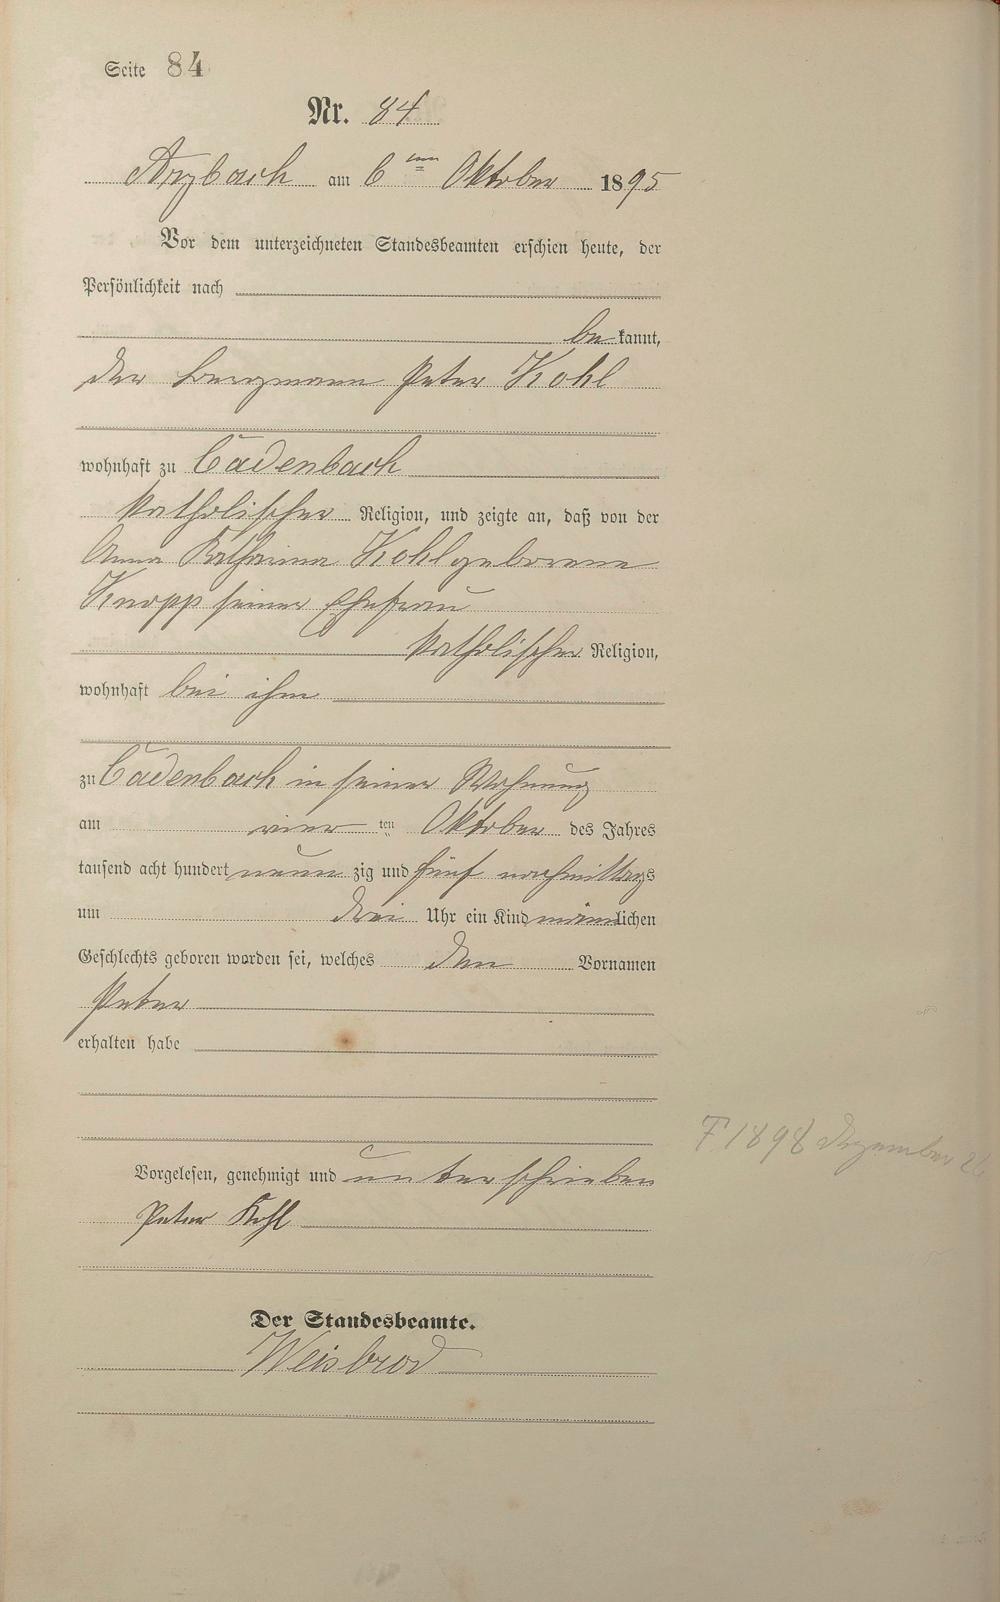 Seite 84
Nr. 84
Arzbach am 6ten Oktober 1895
Vor dem unterzeichneten Standesbeamten erschien heute, der
Persönlichkeit nach
bekannt,
der Bergmann Peter Kohl
wohnhaft zu Cadenbach
katholischer Religion, und zeigte an, daß von der
Anna Katharina Kohl geborene
Knopp seiner Ehefrau
katholischer Religion,
wohnhaft bei ihm
zu Cadenbach in seiner Wohnung
am vierten Oktober des Jahres
tausend acht hundert neunzig und fünf nachmittags
um drei Uhr ein Kind männlichen
Geschlechts geboren worden sei, welches den Vornamen
Peter
erhalten habe
F 1898 Dezember 26
Vorgelesen, genehmigt und unterschrieben
Peter Kohl
Der Standesbeamte.
Weisbrod